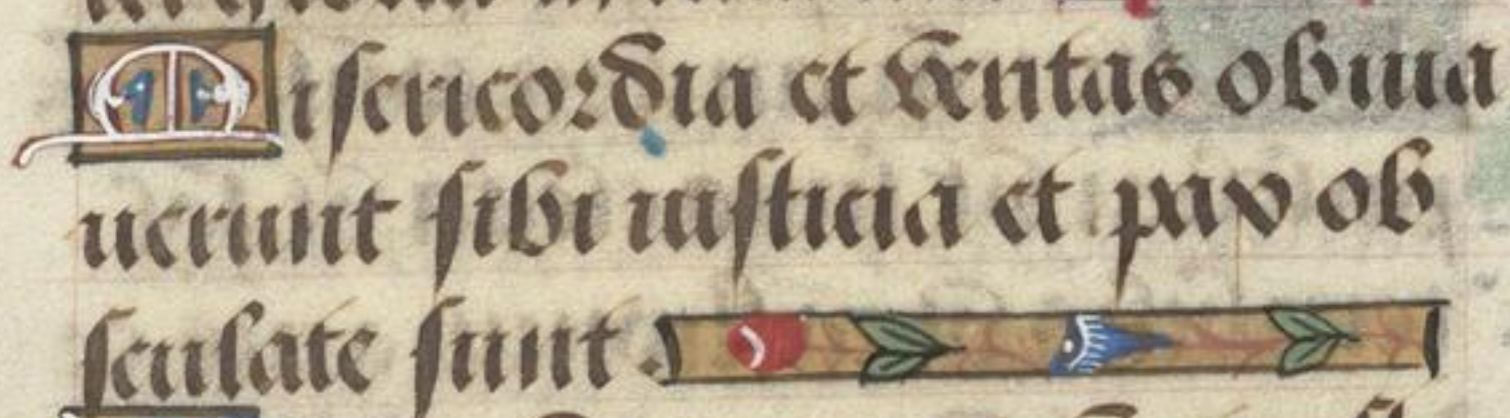 Misericordia et veritas obuia
uerunt sibi iusticia et pax ob
sculate sunt.